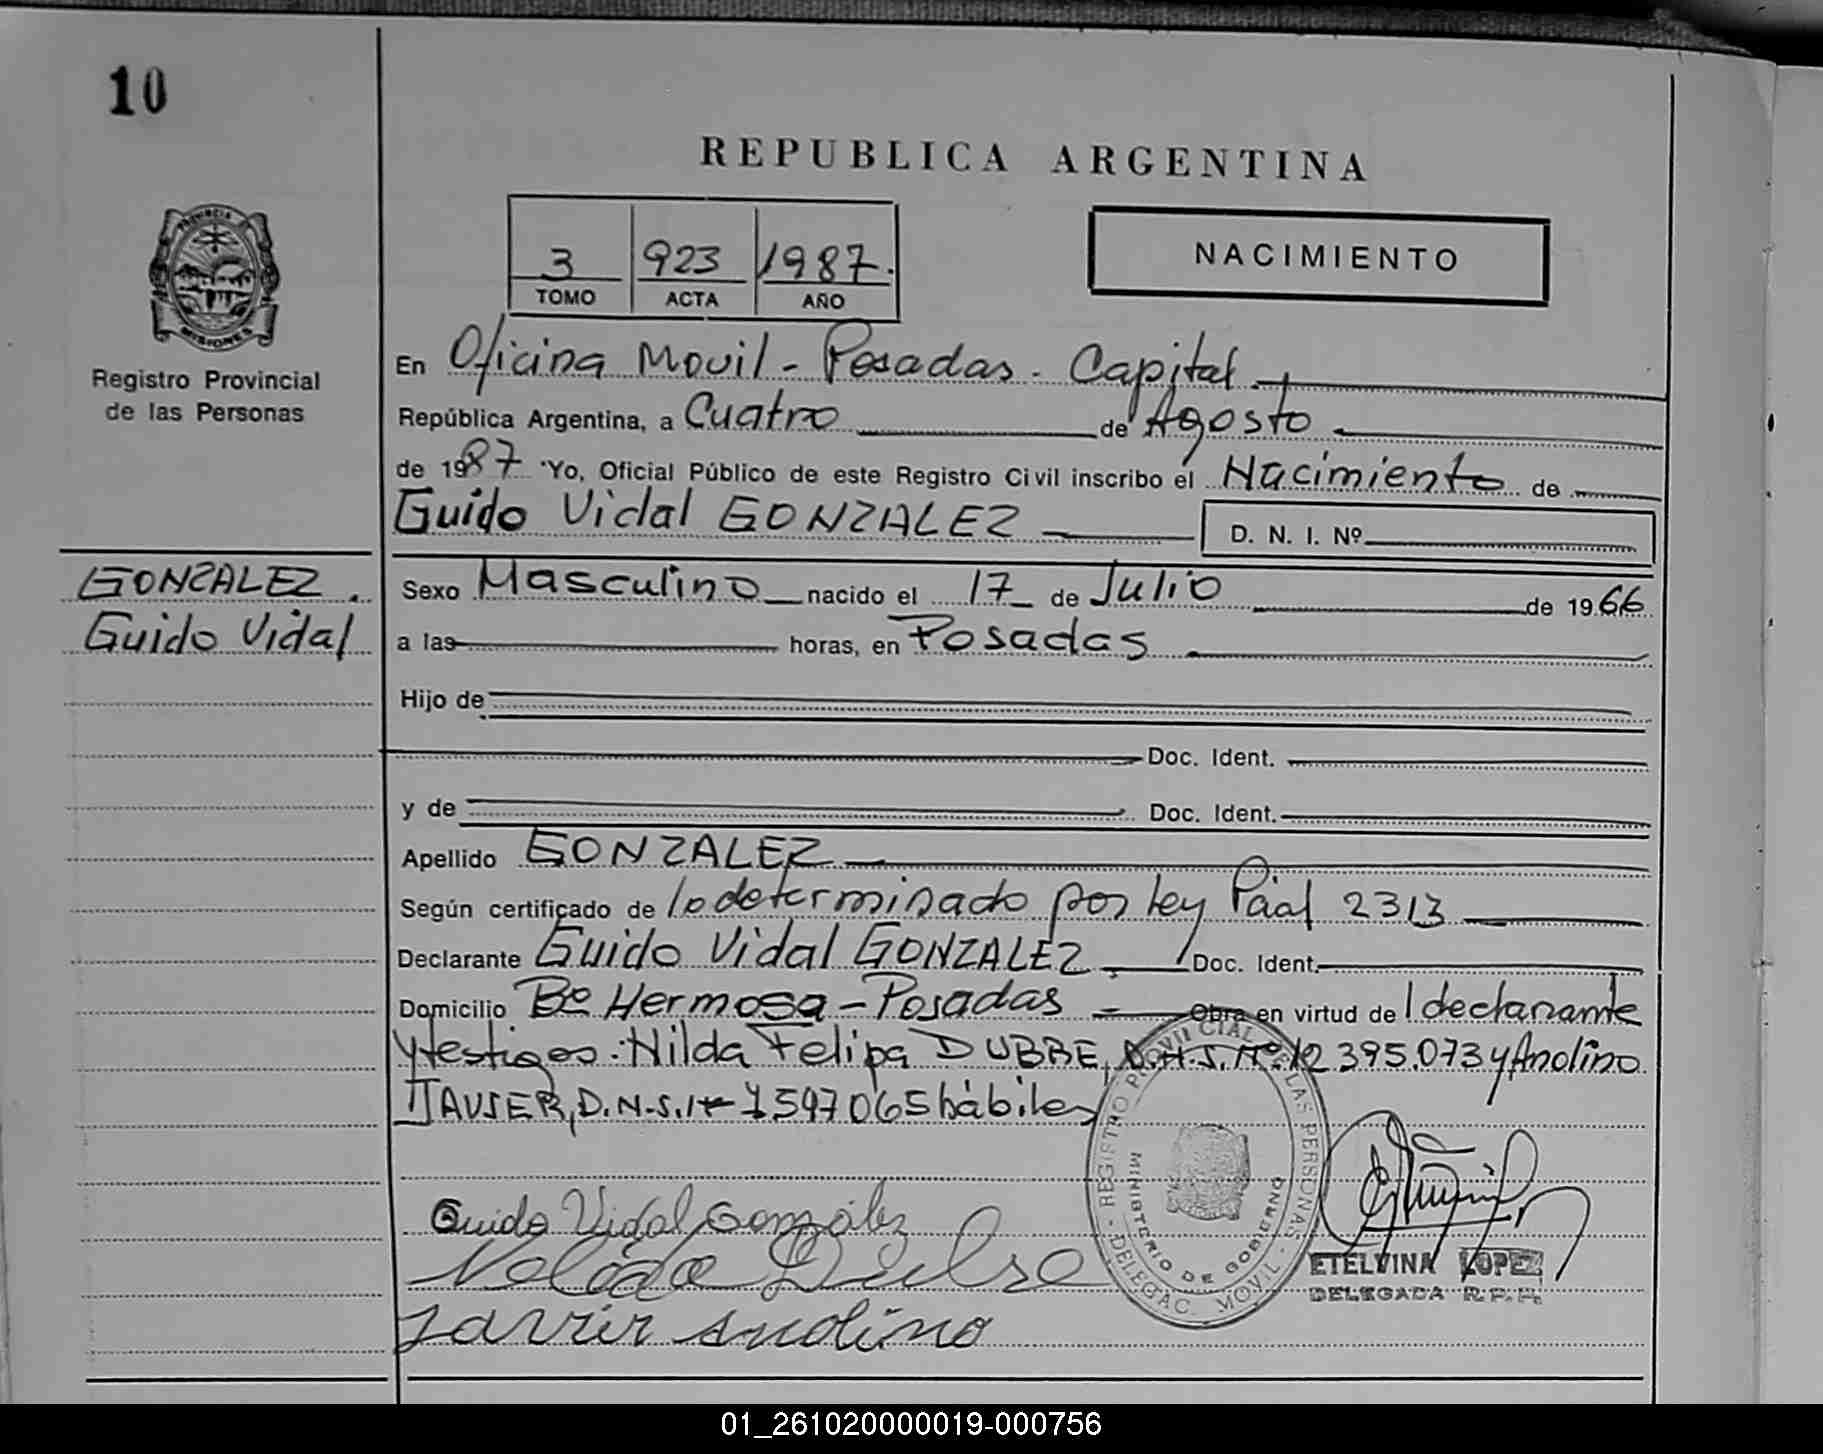 10
REPUBLICA ARGENTINA
PROVINCIA
MISIONES
Registro Provincial
de las Personas
3 923 1987.
TOMO ACTA AÑO
NACIMIENTO
En Oficina Movil - Posadas. Capital.
República Argentina, a Cuatro de Agosto
de 1987 Yo, Oficial Público de este Registro Civil inscribo el Nacimiento de
Guido Vidal GONZALEZ D. N. I. Nº
GONZALEZ.
Guido Vidal
Sexo Masculino nacido el 17 de Julio de 1966
a las horas, en Posadas
Hijo de
Doc. Ident.
y de Doc. Ident.
Apellido GONZALEZ
Según certificado de lo determinado por ley Pcial 2313
Declarante Guido Vidal GONZALEZ Doc. Ident.
Domicilio Bº Hermosa - Posadas Obra en virtud de l declarante
y testigos: Nilda Felipa DUBRE, Nº 12 395.073 y Anolino
JAVIER, D.N.S. 7597065 hábiles
Guido Vidal González
Javier Anolino
REGISTRO PROVINCIAL DE LAS PERSONAS - DELEGAC. MOVIL -
MINISTERIO DE GOBIERNO
ETELVINA LOPEZ
DELEGADA R.P.P.
01_261020000019-000756